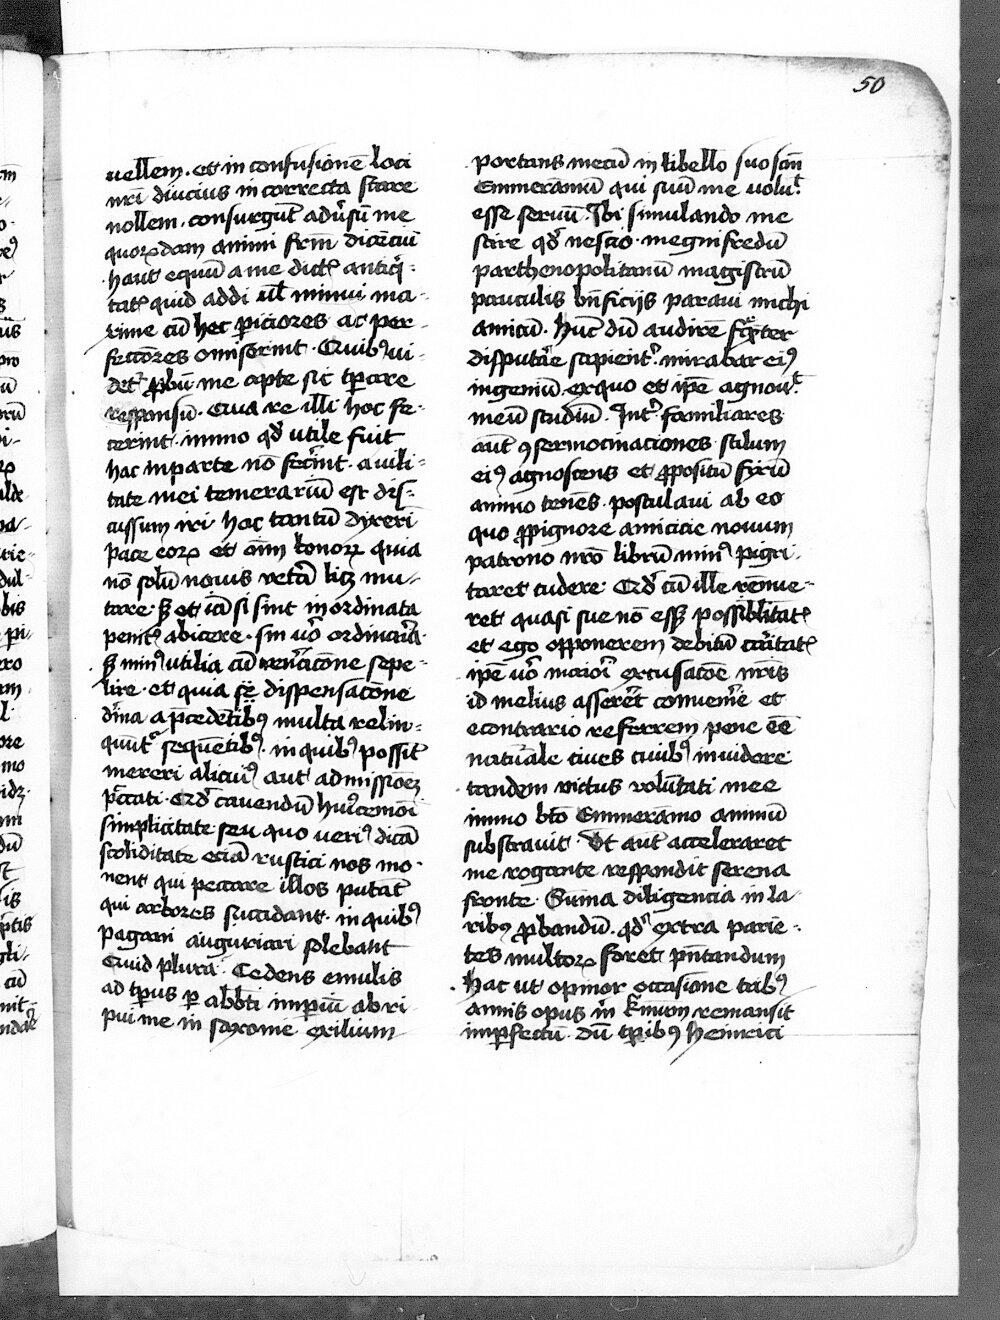 50
uellem. et in confusionē loci
nr̄i diucius in correcta stare
nollem. consurgūt adūsū me
quorꝝdam animi frm̄ dicēciū
haut equū a me dict᷑ antiq̄-
tat᷑ quid addi ul᷑ minui ma-
xime cū hec p̱iciores ac per-
fectōres omiserint. Quibꝰ ui-
det᷑ ꝓbūi me apte sic tp̱are
responsū. Qua re illi hoc fe-
cerint. immo qd̄ utile fuit
hac inparte nō fec̄int. a uili-
tate mei temerariū est dis-
cussum iri. hac tantū dyxeri
pace eorꝝ et om̄i honorꝝ quia
nō solū nouis vet̄a licꝫ mu-
tare. sꝫ et ic̄a si sint inordinata
penit᷑ abicere. sin uō ordinar̄ia
sꝫ minꝰ utilia cū ven̄acōne sepe-
lire. et quia sē dispensacōne
d̄ina a p̄cedētibꝰ multa relin-
quūt᷑ sequētibꝰ. in quibꝰ possit
mereri alicuiꝰ aut admissiōeꝫ
p̄ccati. Qd̄ cauendū huiꝰcemōi
simplicitate seu quo ueriꝰ dicā
stoliditate eciā rustici nos mo-
nent qui peccare illos putāt
qui arbores succidant. in quibꝰ
pagani auguriari solebant
Quid plura. Cedens emulis
ad tp̱us ꝑ abb̄ti imp̱iū abri-
pui me in saxonie exilium
portans mecū in libello suo sc̄m
Emmeramū qui suū me uolu᷑
esse seruū. Ibi simulando me
scire qd̄ nescio. meginfredū
parthenopolitanū magistrū
pauculis bn̄ficijs paraui michi
amicū. Hūc dū audirē fq̄ꝛter
disputāe sapient᷑. mirabar eiꝰ
ingeniū. exquo et ip̄e agnou᷑
meū studiū. Int᷑ familiares
aut̄ ꝯsermocinaciones stilum
eiꝰ agnoscens et ꝓpositū fixū
animo tenēs. postulaui ab eo
quo ꝓpignore amicicie nouum
patrono nr̄o librū minꝰ pigri-
taret cudere. Qd̄ cū ille rēnue-
ret quasi sue nō essꝫ possibilitat᷑
et ego opponerem debitū car̄itat᷑
ip̄e uō maiori excusatōe nr̄is
id melius asserēt conuenīe et
econtrario referrem pene ēē
natuāle ciues ciuibꝰ inuidere
tandem victus volūtati mee
immo bt̄o Emmerāmo animū
substrauit. Vt aut̄ acceleraret
me rogante respondit serena
fronte. Sūma diligencia in la-
ribꝰ ꝓbandū. qd̄ extra pariē-
tes multorꝝ foret pn̄tandum
Hac ut opinor occasione tribꝰ
annis opus
imp̱fectū. dū tp̱ibꝰ heinrici